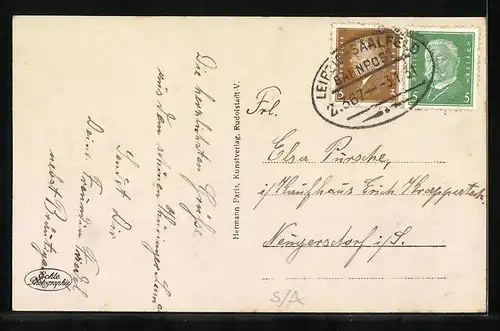 Die herzlichsten Grüße
aus dem schönen Thüringer Lande
sendet Dir
Deine Freundin
nebst Bräutigam
Echte
Photographie
Hermann Paris, Kunstverlag, Rudolstadt-V.
LEIPZIG SAALFELD
BAHNPOST
Z.567
3
5
Frl.
Elsa Pursche,
i/ Kaufhaus Erich
Neugersdorf i/S.
S/A